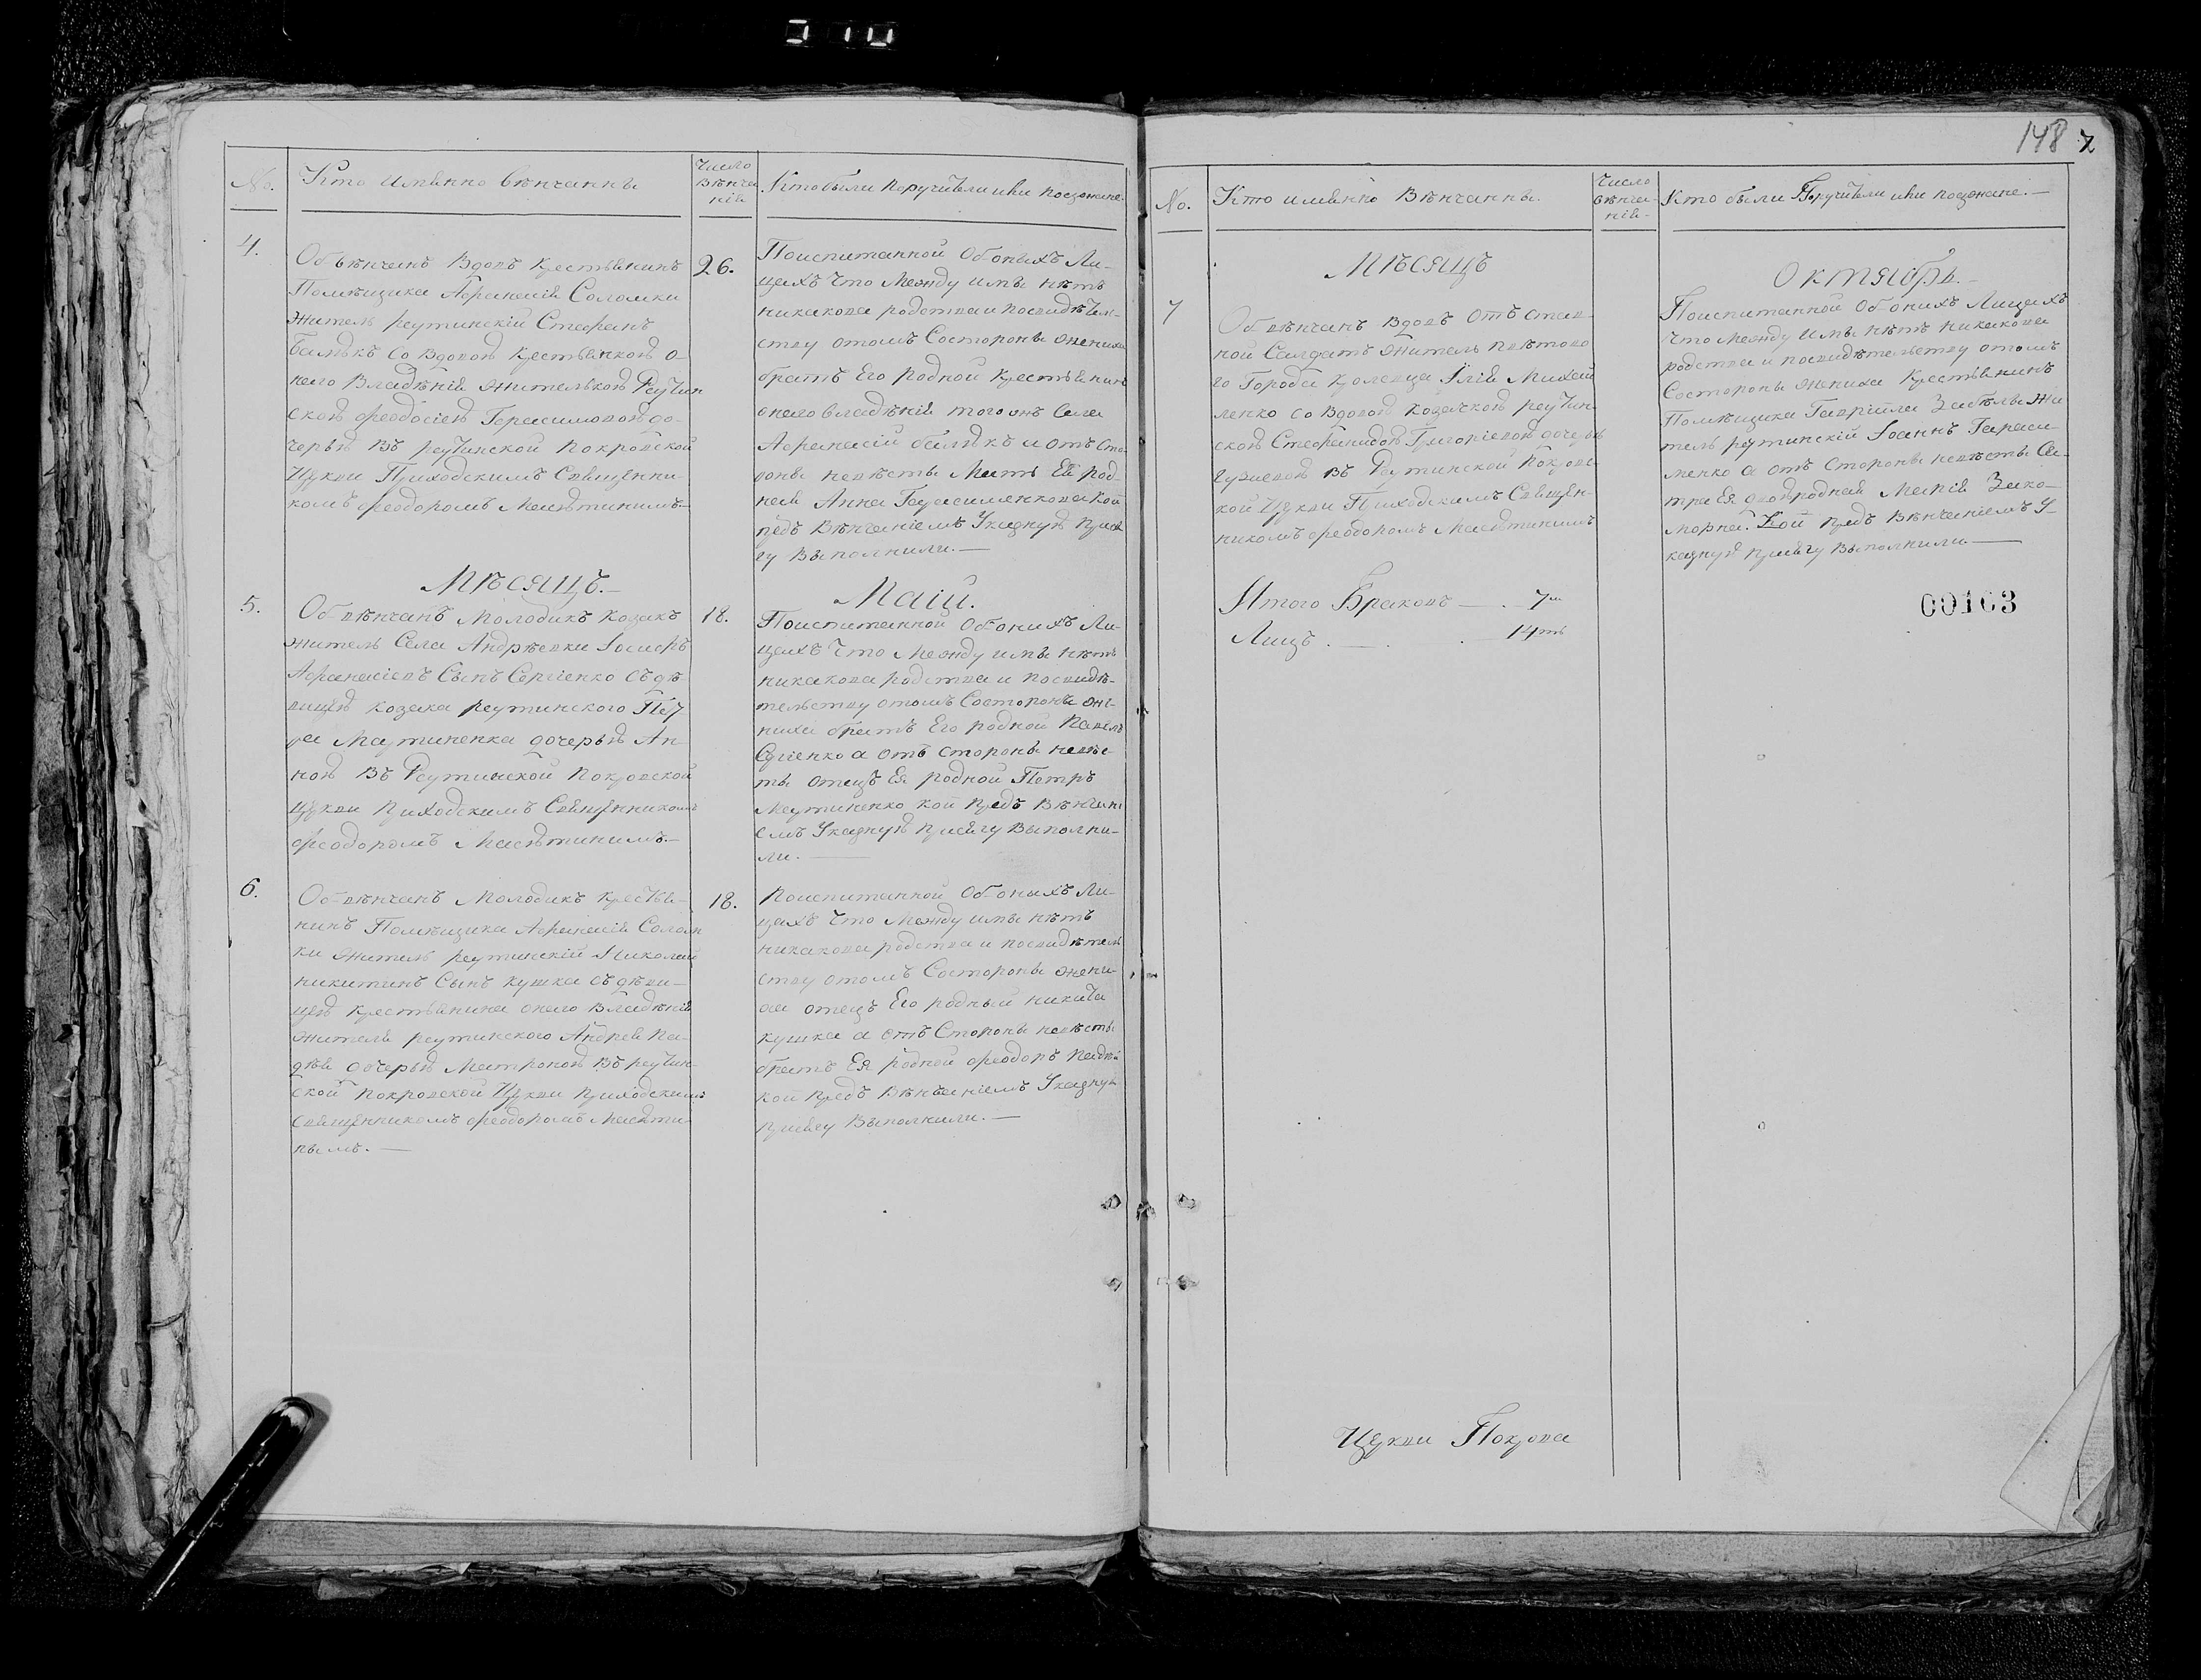 148 7
No.
Кто именно вѣнчанны
Число
Вѣнча
нія
Кто были Поручители или поезжане.
4.
Обвѣнчанъ Вдовъ крестьянинъ
Помѣщика Афанасія Соломки
житель реутинскій Стефанъ
со вдовою крестьянкою о-
наго Владѣнія жителькою Реутин
скою феодосіею Герасимовою до-
черью въ реутинской Покровской
Церкви Приходскимъ Священни-
комъ феодоромъ
26.
Поиспитанной обонихъ Ли-
цахъ что между ими нѣтъ
никакова родства и посвидѣтел-
ству отомъ Состороны жениха
братъ Его родной крестьянинъ
онаго владѣнія того жъ Села
Афанасій и отъ сто
роны невѣсты Мать Ея род-
ная Анна Герасименкова кои
предъ Вѣнчаніемъ Указную прися
гу Выполнили.—
Мѣсяцъ.—
Маій.
5.
Обвѣнчанъ Молодикъ козакъ
житель Села Андрѣевки Іосифъ
Афанасіевъ Сынъ Сергіенко съ дѣ
вицею козака реутинского Пет
ра Мартиненка дочерью Ан
ною въ Реутинской Покровской
Церкви Приходскимъ Священникомъ
феодоромъ
18.
Поиспитанной обонихъ Ли-
цахъ что Между ими нѣтъ
никакова родства и посвидѣ-
тельству отомъ Состороны же-
ниха братъ Его родной Павелъ
Сергіенко а отъ стороны невѣс-
ты отецъ Ея родной Петръ
Мартиненко кои предъ Вѣнчані
емъ Указную присягу Выполни-
ли.—
6.
Обвѣнчанъ Молодикъ крестья-
нинъ Помѣщика Афанасія Солом
ки житель реутинскій Николай
никитинъ Сынъ кушка съ дѣви-
цею крестьянина онаго Владѣнія
жителя реутинского Андрея
дочерью Матроною въ реутин-
ской Покровской Церкви Приходскимъ
Священникомъ феодоромъ
нымъ.—
18.
Поиспитанной обонихъ Ли-
цахъ что Между ими нѣтъ
никакова родства и посвидѣтель
ству отомъ Состороны жени-
ха отецъ Его родный никита
кушка а отъ Стороны невѣсты
братъ Ея родной феодоръ
кои предъ Вѣнчаніемъ Указную
присягу Выполнили.—
No.
Кто именно Вѣнчанны.
Число
вѣнча-
нія-
Кто были Поручители или поезжане.—
Мѣсяцъ
Октябрь.—
7
Обвѣнчанъ Вдовъ отъ став
ной Салдатъ житель
го Города Кролевца Ілія Михай
ленко со вдовою козачкою реутин
скою Стефанидою Григоріевою дочерью
въ Реутинской Покровс
кой Церкви Приходскимъ Священ-
никомъ феодоромъ
Поиспитанной обонихъ Лицахъ
что Между ими нѣтъ никакова
родства и посвидѣтельству отомъ
Состороны жениха Крестьянинъ
Помѣщика Гавріила Забѣлы жи
тель реутинскій Іоаннъ Гараси
менко а отъ Стороны невѣсты Се-
тра Ея двоюродная Марія
Кои предъ Вѣнчаніемъ У-
казную присягу Выполнили—
Итого Браковъ — . 7м
Лицъ . — . . 14ть
00103
Церкви Покрова